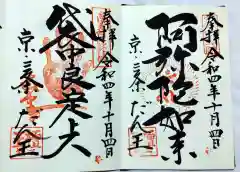 奉拝 令和四年十月四日
阿弥陀如来
京・三条 だん王
奉拝 令和四年十月四日
袋中良定大
京・三条 だん王